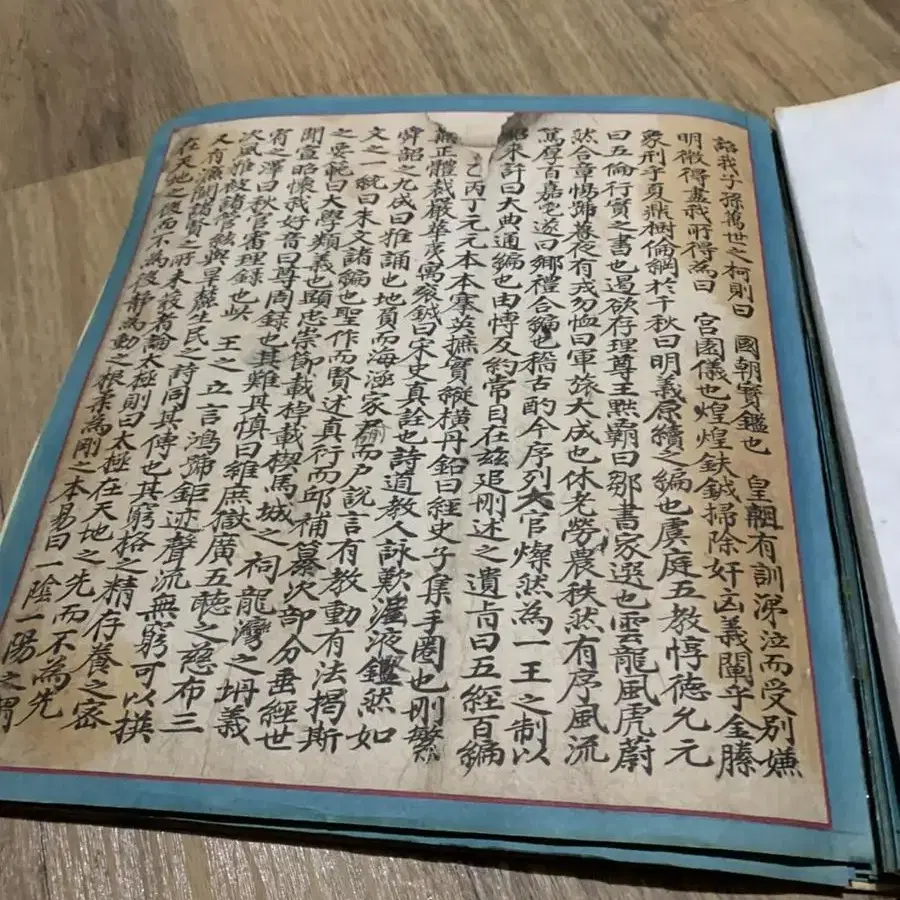 詒我子孫萬世之柯則曰 國朝寶鑑也 皇祖有訓涕泣而受別嫌
明微得盡我所得為曰 宮園儀也煌煌鈇鉞掃除奸凶義闡乎金縢
象刑乎夏鼎樹倫綱於千秋曰明義原續之編也虞庭五教惇德允元
曰五倫行實之書也遏欲存理尊王黜霸曰鄒書家選也雲龍風虎蔚
然合章惕號暮夜有戎勿恤曰軍旅大成也休老勞農秩然有序風流
篤厚百嘉宅遂曰鄉禮合編也稽古酌今序列大官燦然為一王之制以
昭來許曰大典通編也由博及約常目在玆追刪述之遺旨曰五經百編
乙丙丁元元本本搴英摭實縱橫丹鉛曰經史子集手圈也刪繁
無正體裁嚴華夷寓袞鉞曰宋史真詮也詩道教人詠歎滛液鑑然如
舜韶之九成曰雅誦也地負而海涵家 而戶說言有教動有法揭斯
文之一統曰朱文諸編也聖作而賢述真行而邱補纂次部分垂經世
之要範曰大學類義也顯忠崇節載棹載楔馬城之祠龍灣之坍義
聞宣昭懷我好音曰尊周録也其難其慎曰維庶獄廣五聽之慈布三
宥之澤曰秋官審理錄也此 王之立言鴻號鉅迹聲流無窮可以撰
次風雅被諸管絃與旱麓生民之詩同其傳也其窮格之精存養之密
又有濂閩諸賢之所未發者論太極則曰太極在天地之先而不為先
在天地之後而不為後靜為動之根柔為剛之本易曰一陰一陽之謂